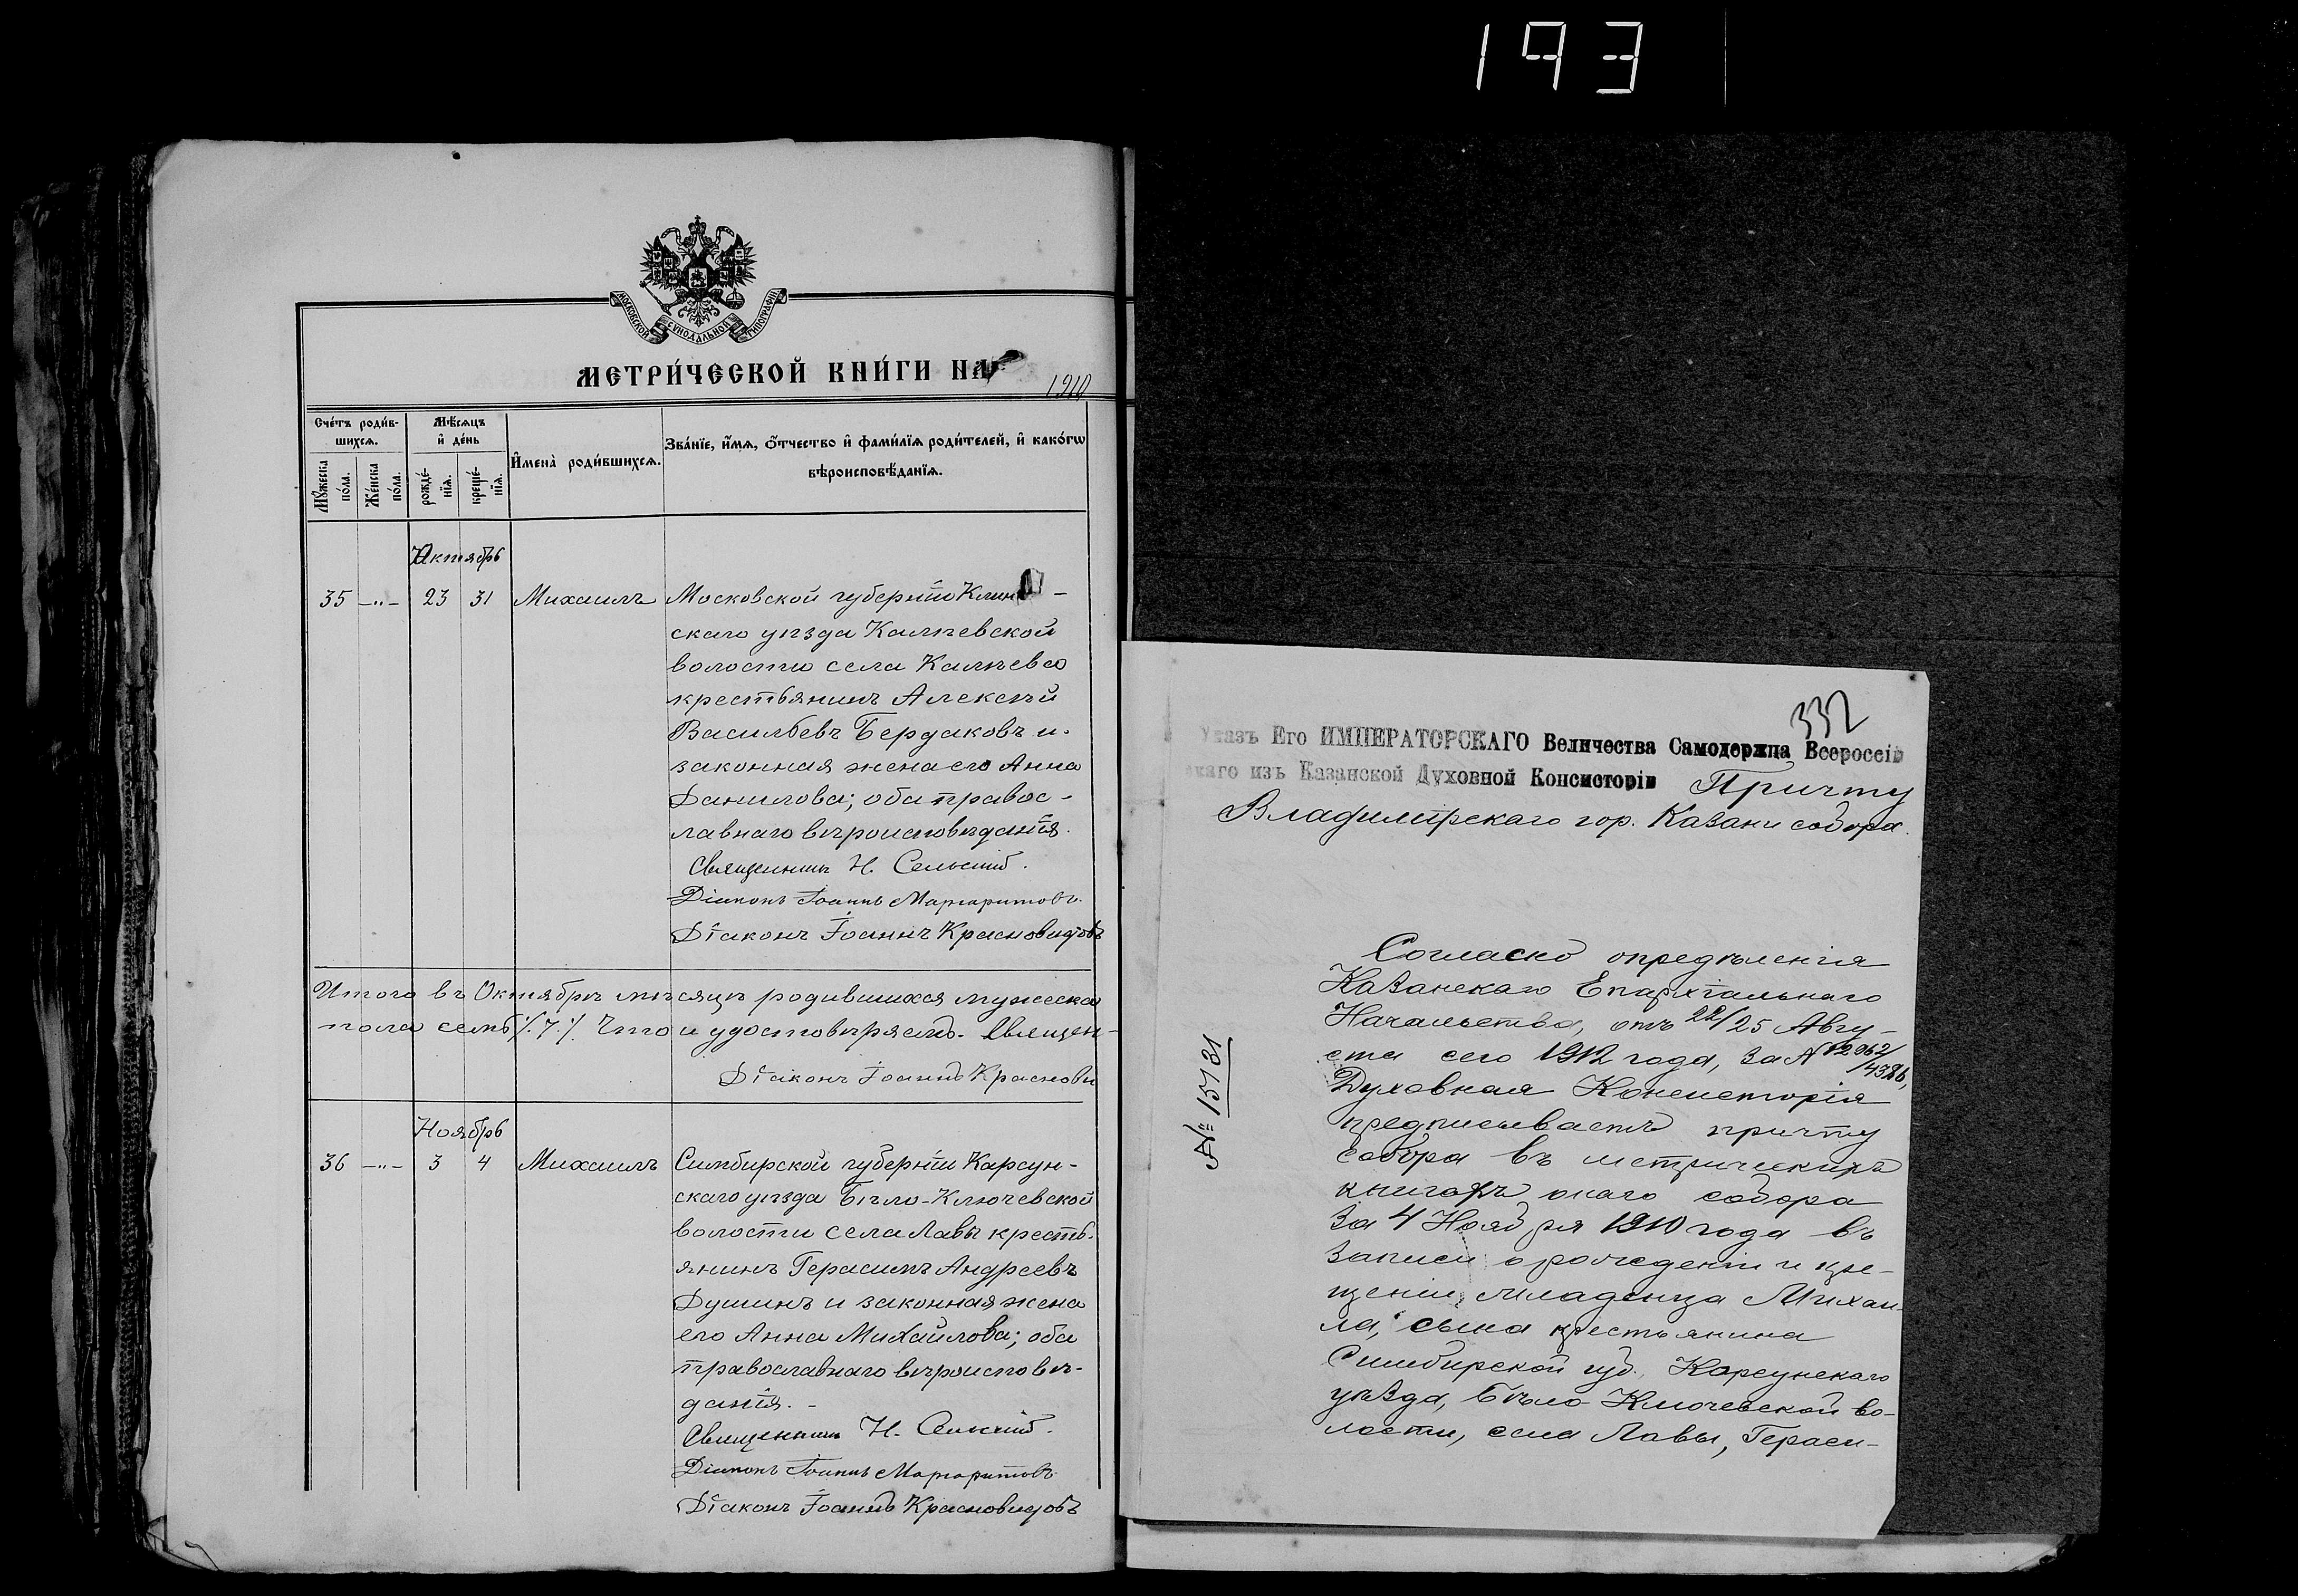 193
МОСКОВСКОЙ СѴНОДАЛЬНОЙ ТИПОГРАФІИ
МЕТРИ́ЧЕСКОЙ КНИ́ГИ НА
1910
Сче́тъ роди́в-
шихся.
Мѣ́сяцъ
и҆ де́нь
Му́жеска
по́ла.
Же́нска
по́ла.
рожде́-
нїя.
креще́-
нїя.
И҆мена̀ роди́вшихся.
Зва́нїе, и҆́мя, ѻ҆́тчество и҆ фами́лїя роди́телей, и҆ како́гѡ
вѣроисповѣ́данїя.
Октябрь
35 —„— 23 31 Михаилъ Московской губерніи Клин-
скаго уѣзда Калѣевской
волости села Калѣева
крестьянинъ Алексѣй
Васильевъ Бердаковъ и
законная жена его Анна
Данилова; оба правос-
лавнаго вѣроисповѣданія.
Священникъ Н. Сельскій.
Діаконъ Іоаннъ Маргаритовъ.
Діаконъ Іоаннъ Красновидовъ
Итого въ Октябрѣ мѣсяцѣ родившихся мужеска
пола семь /.7./. Что и удостовѣряемъ. Священ-
Діаконъ Іоаннъ Краснови
Ноябрь
36 —„— 3 4 Михаилъ Симбирской губерніи Карсун-
скаго уѣзда Бѣло-Ключевской
волости села Лавы кресть-
янинъ Герасимъ Андреевъ
Душинъ и законная жена
его Анна Михайлова; оба
православнаго вѣроисповѣ-
данія. -
Священникъ Н. Сельскій.
Діаконъ Іоаннъ Маргаритовъ
Діаконъ Іоаннъ Красновидовъ
332
Указъ Его ИМПЕРАТОРСКАГО Величества Самодержца Всероссій
скаго изъ Казанской Духовной Консисторіи Причту
Владимірскаго гор. Казани собора.
№ 15181
Согласно опредѣленія
Казанскаго Епархіальнаго
Начальства, отъ 22/25 Авгу-
ста сего 1912 года, за №
Духовная Консисторія
предписываетъ причту
собора въ метрическихъ
книгахъ онаго собора
за 4 Ноября 1910 года въ
записи о рожденіи и кре-
щеніи младенца Михаи
ла, сына крестьянина
Симбирской губ., Карсунскаго
уѣзда, Бѣло-Ключевской во-
лости, села Лавы, Гераси-